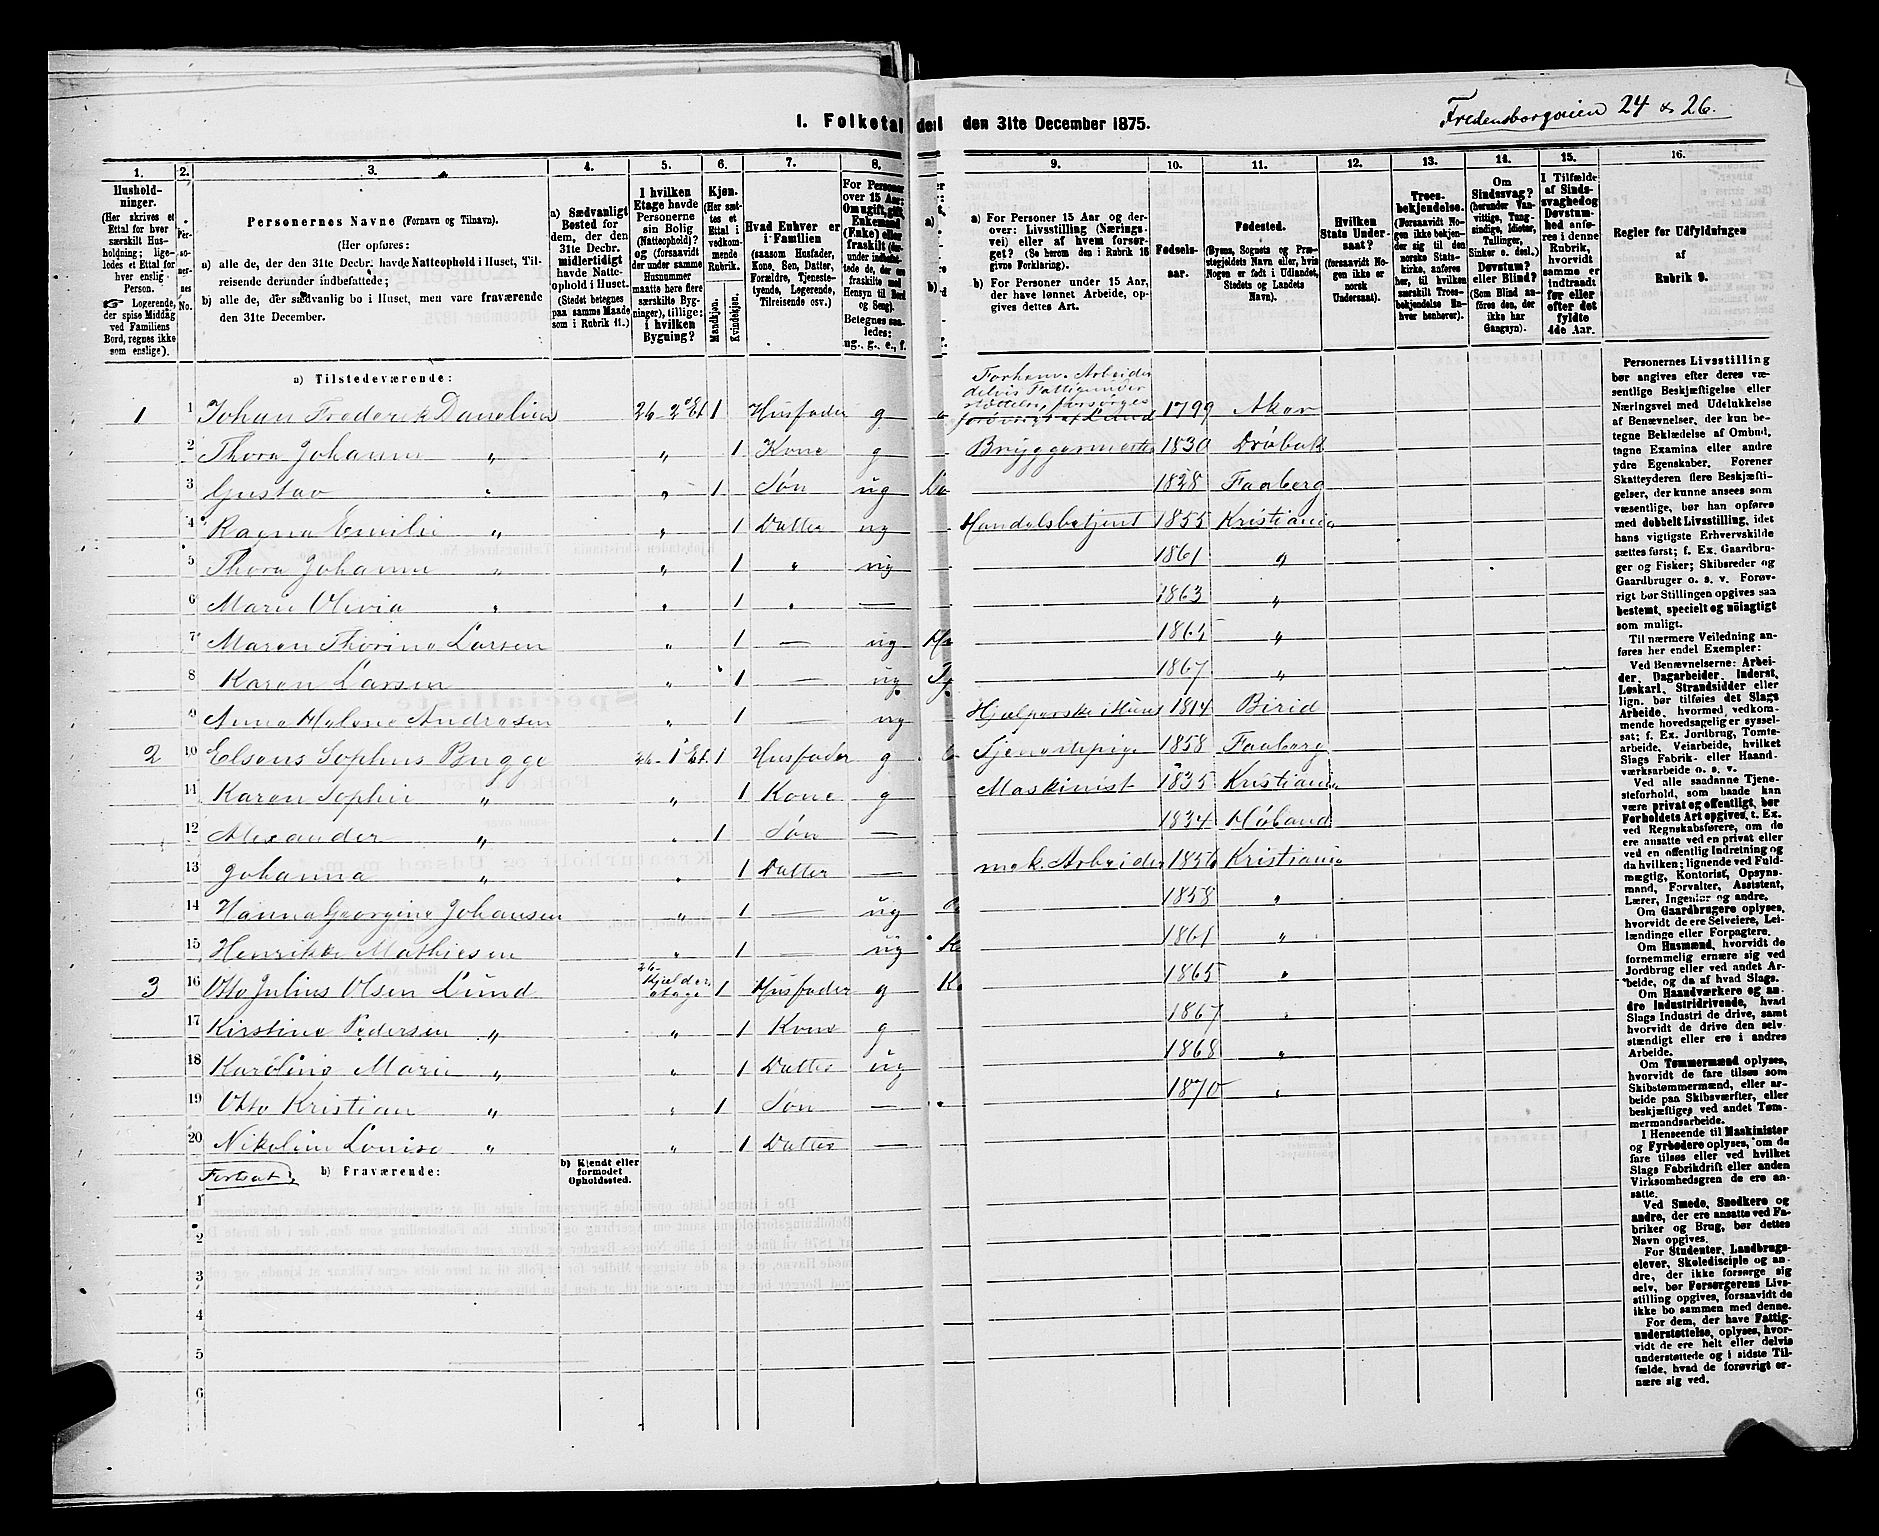 1. Folketal
den 31te December 1875.
Fredensborgveien 24 & 26.
1. 2. 3. 4. 5. 6. 7. 8.
Hushold-
ninger.
(Her skrives et
Ettal for hver
særskilt Hus-
holdning; lige-
ledes et Ettal for
hver enslig
Person.
☞ Logerende,
der spise Middag
ved Familiens
Bord, regnes ikke
som enslige).
Per-
soner-
nes-
No.
Personernes Navne (Fornavn og Tilnavn).
(Her opføres:
a) alle de, der den 31te Decbr. havde Natteophold i Huset, Til-
reisende derunder indbefattede;
b) alle de, der sædvanlig bo i Huset, men vare fraværende
den 31te December.
a) Sædvanligt
Bosted for
dem, der den
31te Decbr.
midlertidigt
havde Natte-
ophold i Huset.
(Stedet betegnes
paa samme Maade
som i Rubrik 11.)
I hvilken
Etage havde
Personerne
sin Bolig
(Natteophold)?
og (forsaavidt
der under samme
Husnummer
maatte høre flere
særskilte Byg-
ninger), tillige:
i hvilken
Bygning?
Kjøn.
(Her sæt-
tes et
Ettal i
vedkom-
mende
Rubrik.
Mandkjøn.
Kvindekjøn.
Hvad Enhver er
i Familien
(saasom Husfader,
Kone, Søn, Datter,
Forældre, Tjeneste-
tyende, Logerende,
Tilreisende osv.)
For Personer
over 15 Aar:
Om ugift, gift,
Enkemand
(Enke) eller
fraskilt
Betegnes saa-
ledes:
ug., g., e., f.
a) Tilstedeværende:
1 1 Johan Frederik Danelius 26-2 Et. 1 Husfader g
2 Thora Johanne " " 1 Kone g
3 Gustav " " 1 Søn ug
4 Ragna Emilie " " 1 Datter ug
5 Thora Johanne " " 1 " ug
6 Marie Olivia " " 1 " —
7 Maren Thorine Larsen " 1 — ug
8 Karen Larsen " 1 — ug
9 Anna Helene Andrasen " 1 — ug
2 10 Elsens Sophus Bugge 26-1 Et. 1 Husfader g
11 Karen Sophie " " 1 Kone g
12 Alexander " " 1 Søn —
13 Johanna " " 1 Datter —
14 Hanna Georgine Johansen " 1 — ug
15 Henrikke Mathiesen " 1 — ug
3 16 Otto Julius Olsen Lund 26- Kjelder etage 1 Husfader g
17 Kirstine Pedersen " " 1 Kone g
18 Karoline Marie " " 1 Datter ug
19 Otto Kristian " " 1 Søn —
20 Nikoline Louise " " 1 Datter —
Fortsat b) Fraværende:
b) Kjendt eller
formodet
Opholdssted.
1
2
3
4
5
6
9. 10. 11. 12. 13. 14. 15. 16.
a) For Personer 15 Aar og der-
over: Livsstilling (Nærings-
vei) eller af hvem forsør-
get? (Se herom den i Rubrik 16
givne Forklaring).
b) For Personer under 15 Aar,
der have lønnet Arbeide, op-
gives dettes Art.
Fødsels-
aar.
Fødested.
(Byens, Sognets og Præ-
stegjeldets Navn eller, hvis
Nogen er født i Udlandet,
Stedets og Landets
Navn).
Hvilken
Stats Under-
saat?
(forsaavidt No-
gen ikke er
norsk
Undersaat).
Troes-
bekjendelse.
(Forsaavidt No-
gen ikke bekjen-
der sig til den
norske Stats-
kirke, anføres
her, til hvilken
særskilt Troes-
bekjendelse En-
hver henhører).
Om
Sindssvag?
(herunder Van-
vittige, Tung-
sindige, Idioter,
Tullinger,
Sinker o. desl.).
Døvstum?
eller Blind?
(Som Blind an-
føres den, der
ikke har
Gangsyn).
I Tilfælde
af Sinds-
svaghed og
Døvstum-
hed anfø-
res i denne
Rubrik,
hvorvidt
samme er
indtraadt
før eller
efter det
fyldte
4de Aar.
Regler for Udfyldningen
af
Rubrik 9.
Forhenv. Arbeider
delvis Fattigunder
støttelse, forsørges
1799 Aker
Bryggermester 1830 Drøbak
1828 Faaberg
Handelsbetjent 1855 Kristiania
1861 "
1863 "
1865 "
1867 "
Hjælperske i Huset 1814 Birid
Tjenestepige 1858 Faaberg
Maskinist 1835 Kristiania
1834 Høland
mek. Arbeider 1856 Kristiania
1858 "
1861 "
1865 "
1867 "
1868 "
1870 "
Personernes Livsstilling
bør angives efter deres væ-
sentlige Beskjæftigelse eller
Næringsvei med Udelukkelse
af Benævnelser, der kun be-
tegne Beklædelse af Ombud,
tagne Examina eller andre
ydre Egenskaber. Forener
Skatteyderen flere Beskjæfti-
gelser, der kunne ansees som
væsentlige, bør han opføres
med dobbelt Livsstilling, idet
hans vigtigste Erhvervskilde
sættes først; f. Ex. Gaardbru-
ger og Fisker; Skibsreder og
Gaardbruger o. s. v. Forøv-
rigt bør Stillingen opgives saa
bestemt, specielt og nöiagtigt
som muligt.
Til nærmere Veiledning an-
føres her endel Exempler:
Ved Benævnelserne: Arbei-
der, Dagarbeider, Inderst,
Løskarl, Strandsidder eller
lign. bør tilføies det Slags
Arbeide, hvormed vedkom-
mende hovedsagelig er syssel-
sat; f. Ex. Jordbrug, Tomte-
arbeide, Veiarbeide, hvilket
Slags Fabrik- eller Haand-
værksarbeide o. s. v.
Ved alle saadanne Tjene-
steforhold, som baade kan
være privat og offentligt, bør
Forholdets Art opgives, t. Ex.
ved Regnskabsførere, om de
ere ansatte ved en privat eller
ved en offentlig Indretning og
da hvilken; lignende ved Fuld-
mægtig, Kontorist, Opsyns-
mand, Forvalter, Assistent,
Lærer, Ingeniør og andre.
Om Gaardbrugere oplyses,
hvorvidt de ere Selveiere, Lei-
lændinge eller Forpagtere.
Om Husmænd, hvorvidt de
fornemmelig ernære sig ved
Jordbrug eller ved andet Ar-
beide, og da af hvad Slags.
Om Haandværkere og an-
dre Industridrivende, hvad
Slags Industri de drive, samt
hvorvidt de drive den selv-
stændigt eller ere i andres
Arbeide.
Om Tømmermænd oplyses,
hvorvidt de fare tilsøs som
Skibstømmermænd, eller ar-
beide paa Skibsværfter, eller
beskjæftiges ved andet Tøm-
mermandsarbeide.
I Henseende til Maskinister
og Fyrbødere oplyses, om de
fare tilsøs eller ved hvilket
Slags Fabrikdrift eller anden
Virksomhedsgren de ere an-
satte.
Ved Smede, Snedkere og
andre, der ere ansatte ved Fa-
briker og Brug, bør dettes
Navn opgives.
For Studenter, Landbrugs-
elever, Skoledisciple og an-
dre, der ikke forsørge sig
selv, bør Forsørgerens Livs-
stilling opgives, forsaavidt de
ikke bo sammen med denne.
For dem, der have Fattig-
understøttelse, oplyses, hvor-
vidt de ere helt eller delvis
understøttede og i sidste Til-
fælde, hvad de forøvrigt er-
nære sig ved.